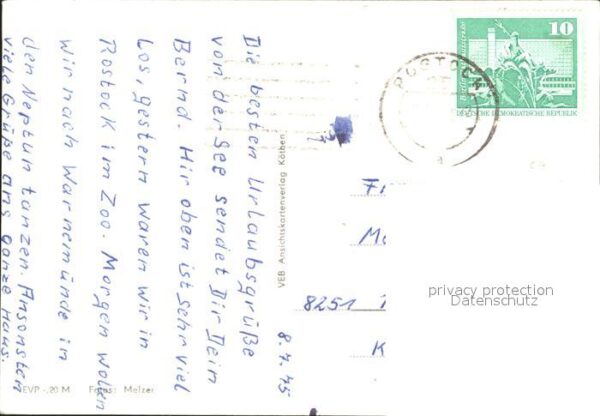 8.7.75
Die besten Urlaubsgrüße
von der See sendet Dir Dein
Bernd. Hir oben ist sehr viel
Los, gestern waren wir in
Rostock im Zoo. Morgen wollen
wir nach Warnemünde in
den Neptun tanzen. Ansonsten
viele Grüße ans ganze Haus.
EVP -,20 M Foto: Melzer
VEB Ansichtskartenverlag Köthen
10
DEUTSCHE DEMOKRATISCHE REPUBLIK
ROSTOCK
8251
privacy protection
Datenschutz